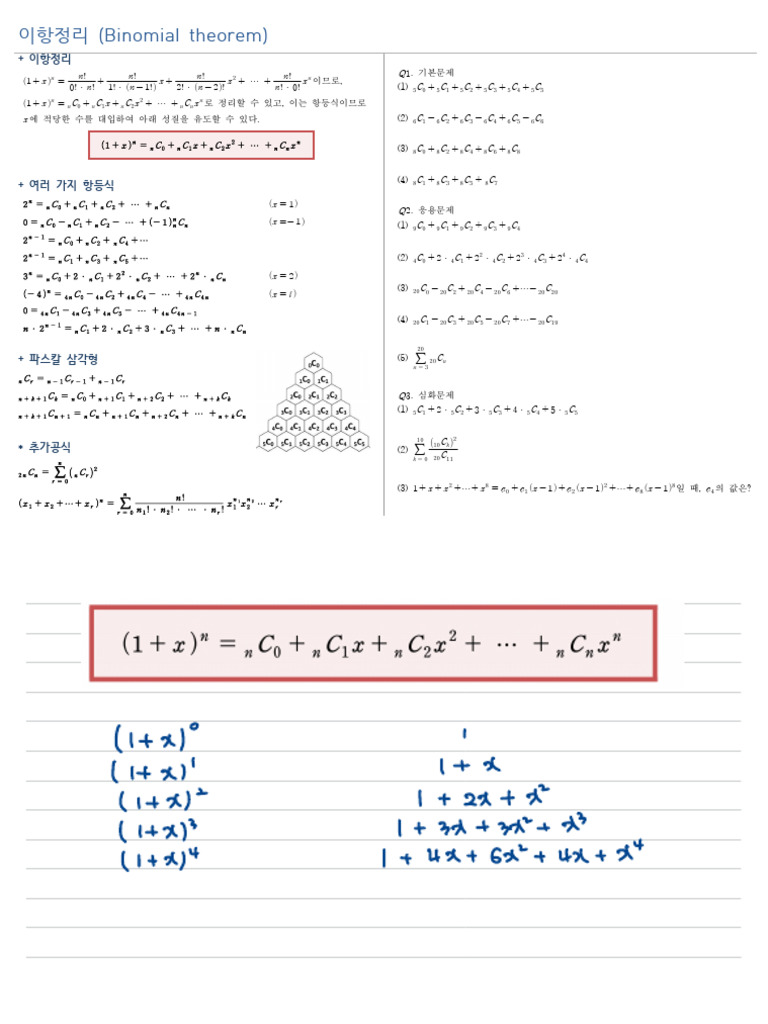 이항정리 (Binomial theorem)
+ 이항정리
(1+x)ⁿ = n!/(0!·n!) + n!/(1!·(n-1)!) x + n!/(2!·(n-2)!) x² + ⋯ + n!/(n!·0!) xⁿ이므로,
(1+x)ⁿ = ₙC₀+ₙC₁x+ₙC₂x²+ ⋯ +ₙCₙxⁿ로 정리할 수 있고, 이는 항등식이므로
x에 적당한 수를 대입하여 아래 성질을 유도할 수 있다.
(1+x)ⁿ = ₙC₀+ₙC₁x+ₙC₂x²+ ⋯ +ₙCₙxⁿ
+ 여러 가지 항등식
2ⁿ = ₙC₀+ₙC₁+ₙC₂+ ⋯ +ₙCₙ (x=1)
0 = ₙC₀-ₙC₁+ₙC₂- ⋯ +(-1)ⁿₙCₙ (x=-1)
2ⁿ⁻¹ = ₙC₀+ₙC₂+ₙC₄+⋯
2ⁿ⁻¹ = ₙC₁+ₙC₃+ₙC₅+⋯
3ⁿ = ₙC₀+2·ₙC₁+2²·ₙC₂+ ⋯ +2ⁿ·ₙCₙ (x=2)
(-4)ⁿ = ₄ₙC₀-₄ₙC₂+₄ₙC₄- ⋯ +₄ₙC₄ₙ (x=i)
0 = ₄ₙC₁-₄ₙC₃+₄ₙC₅- ⋯ +₄ₙC₄ₙ₋₁
n·2ⁿ⁻¹ = ₙC₁+2·ₙC₂+3·ₙC₃+ ⋯ +n·ₙCₙ
+ 파스칼 삼각형
ₙCᵣ = ₙ₋₁Cᵣ₋₁+ₙ₋₁Cᵣ
ₙ₊ₖ₊₁Cₖ = ₙC₀+ₙ₊₁C₁+ₙ₊₂C₂+ ⋯ +ₙ₊ₖCₖ
ₙ₊ₖ₊₁Cₙ₊₁ = ₙCₙ+ₙ₊₁Cₙ+ₙ₊₂Cₙ+ ⋯ +ₙ₊ₖCₙ
₀C₀
₁C₀ ₁C₁
₂C₀ ₂C₁ ₂C₂
₃C₀ ₃C₁ ₃C₂ ₃C₃
₄C₀ ₄C₁ ₄C₂ ₄C₃ ₄C₄
₅C₀ ₅C₁ ₅C₂ ₅C₃ ₅C₄ ₅C₅
* 추가공식
₂ₙCₙ = ∑_{r=0}^{n} (ₙCᵣ)²
(x₁+x₂+⋯+xᵣ)ⁿ = ∑_{r=0}^{n} n!/(n₁!·n₂!· ⋯ ·nᵣ!) x₁^{n₁}x₂^{n₂} ⋯ xᵣ^{nᵣ}
Q1. 기본문제
(1) ₅C₀+₅C₁+₅C₂+₅C₃+₅C₄+₅C₅
(2) ₆C₁-₆C₂+₆C₃-₆C₄+₆C₅-₆C₆
(3) ₈C₀+₈C₂+₈C₄+₈C₆+₈C₈
(4) ₈C₁+₈C₃+₈C₅+₈C₇
Q2. 응용문제
(1) ₉C₀+₉C₁+₉C₂+₉C₃+₉C₄
(2) ₄C₀+2·₄C₁+2²·₄C₂+2³·₄C₃+2⁴·₄C₄
(3) ₂₀C₀-₂₀C₂+₂₀C₄-₂₀C₆+⋯-₂₀C₂₀
(4) ₂₀C₁-₂₀C₃+₂₀C₅-₂₀C₇+⋯-₂₀C₁₉
(5) ∑_{n=3}^{20} ₂₀Cₙ
Q3. 심화문제
(1) ₅C₁+2·₅C₂+3·₅C₃+4·₅C₄+5·₅C₅
(2) ∑_{k=0}^{10} (₁₀Cₖ)²/₂₀C₁₁
(3) 1+x+x²+⋯+x⁸=e₀+e₁(x-1)+e₂(x-1)²+⋯+e₈(x-1)⁸일 때, e₄의 값은?
(1+x)ⁿ = ₙC₀+ₙC₁x+ₙC₂x²+ ⋯ +ₙCₙxⁿ
(1+x)⁰ 1
(1+x)¹ 1+x
(1+x)² 1+2x+x²
(1+x)³ 1+3x+3x²+x³
(1+x)⁴ 1+4x+6x²+4x+x⁴